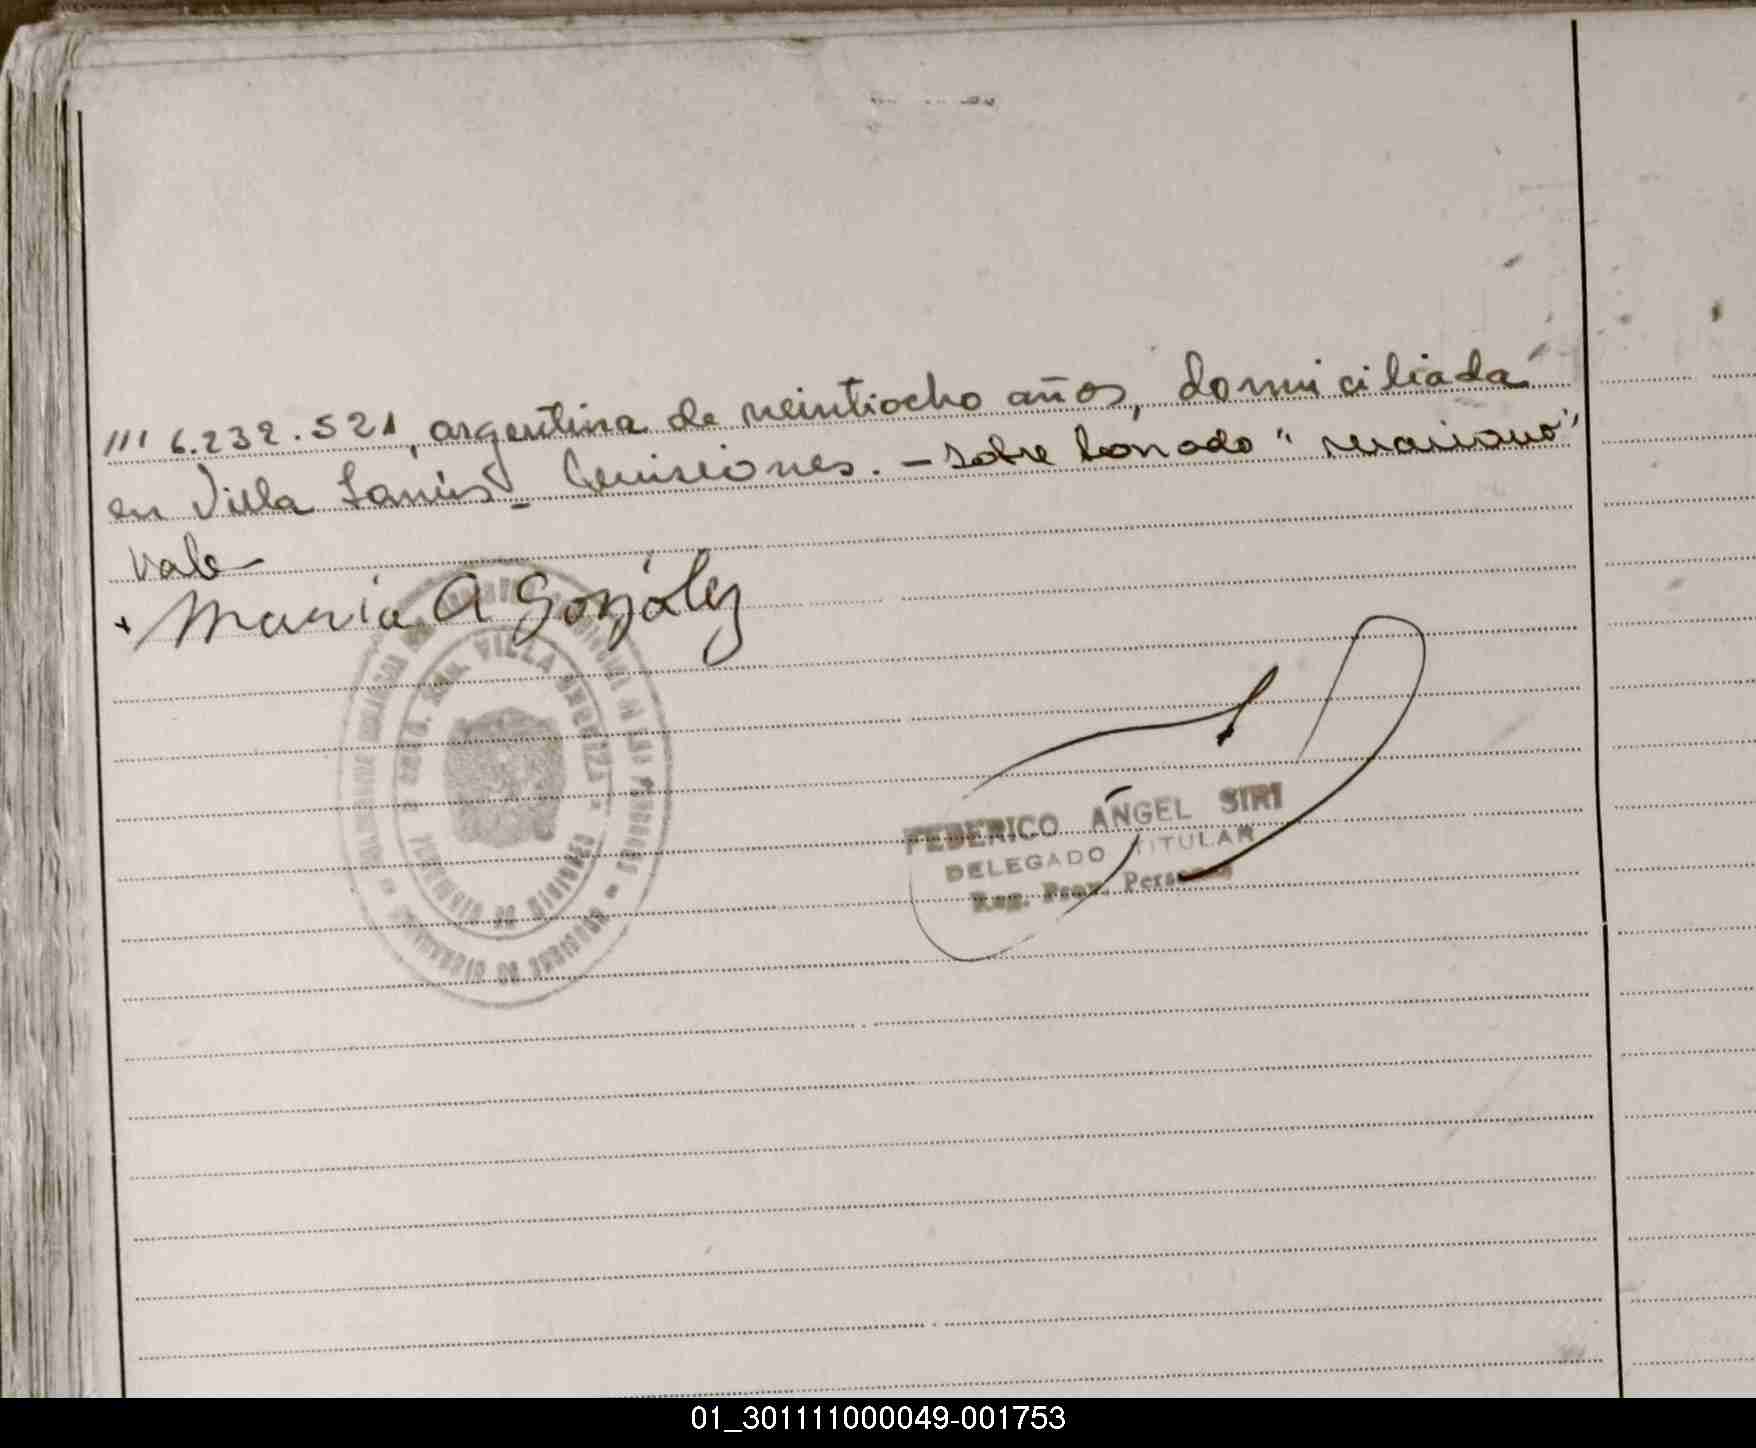 /// 6.232.521, argentina de veintiocho años, domiciliada
en Villa Lanús - Misiones. - sobre borrado " "
vale
+ Maria A González
VILLA URQUIZA
FEDERICO ÁNGEL SIRI
DELEGADO TITULAR
Reg. Prov. Personas
01_301111000049-001753